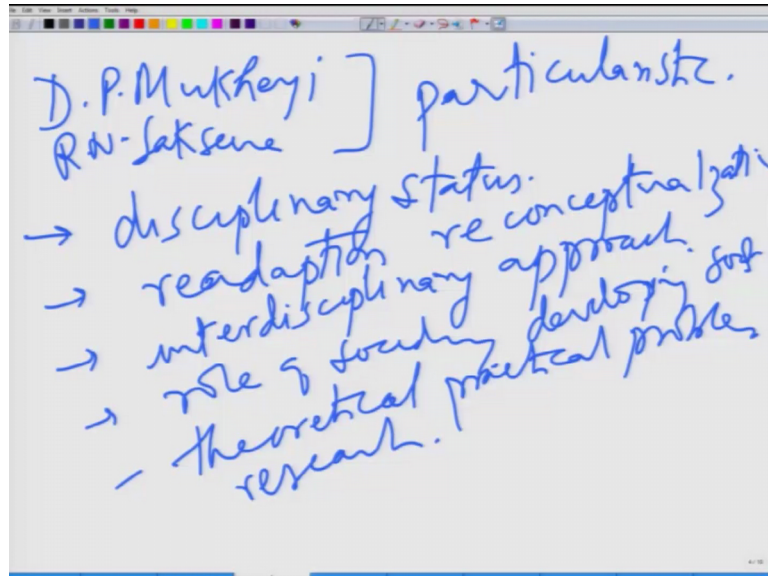 File Edit View Insert Actions Tools Help
D.P. Mukherji ] particularistic.
R.N. Saksena
→ disciplinary status.
→ readaption reconceptualizati
→ interdisciplinary approach.
→ role of developing
– theoretical practical problems
research.